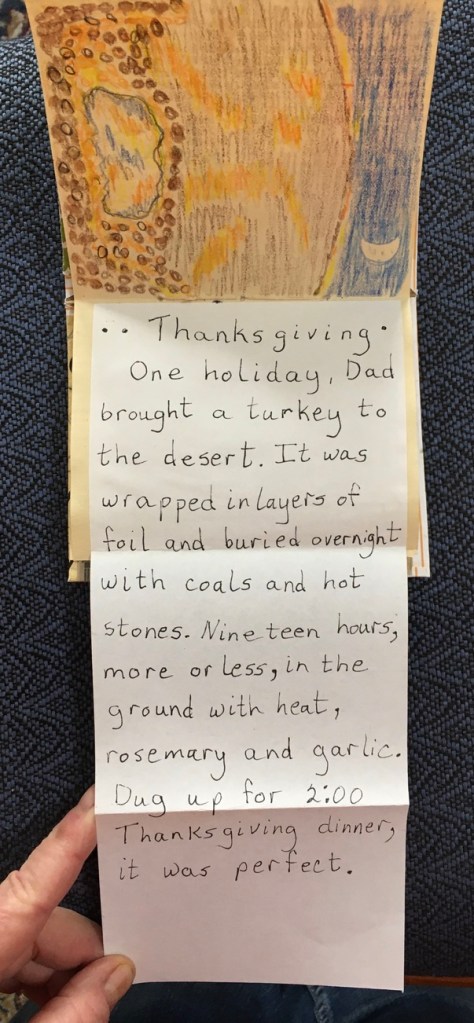 ·· Thanksgiving·
One holiday, Dad
brought a turkey to
the desert. It was
wrapped in layers of
foil and buried overnight
with coals and hot
stones. Nineteen hours,
more or less, in the
ground with heat,
rosemary and garlic.
Dug up for 2:00
Thanksgiving dinner,
it was perfect.